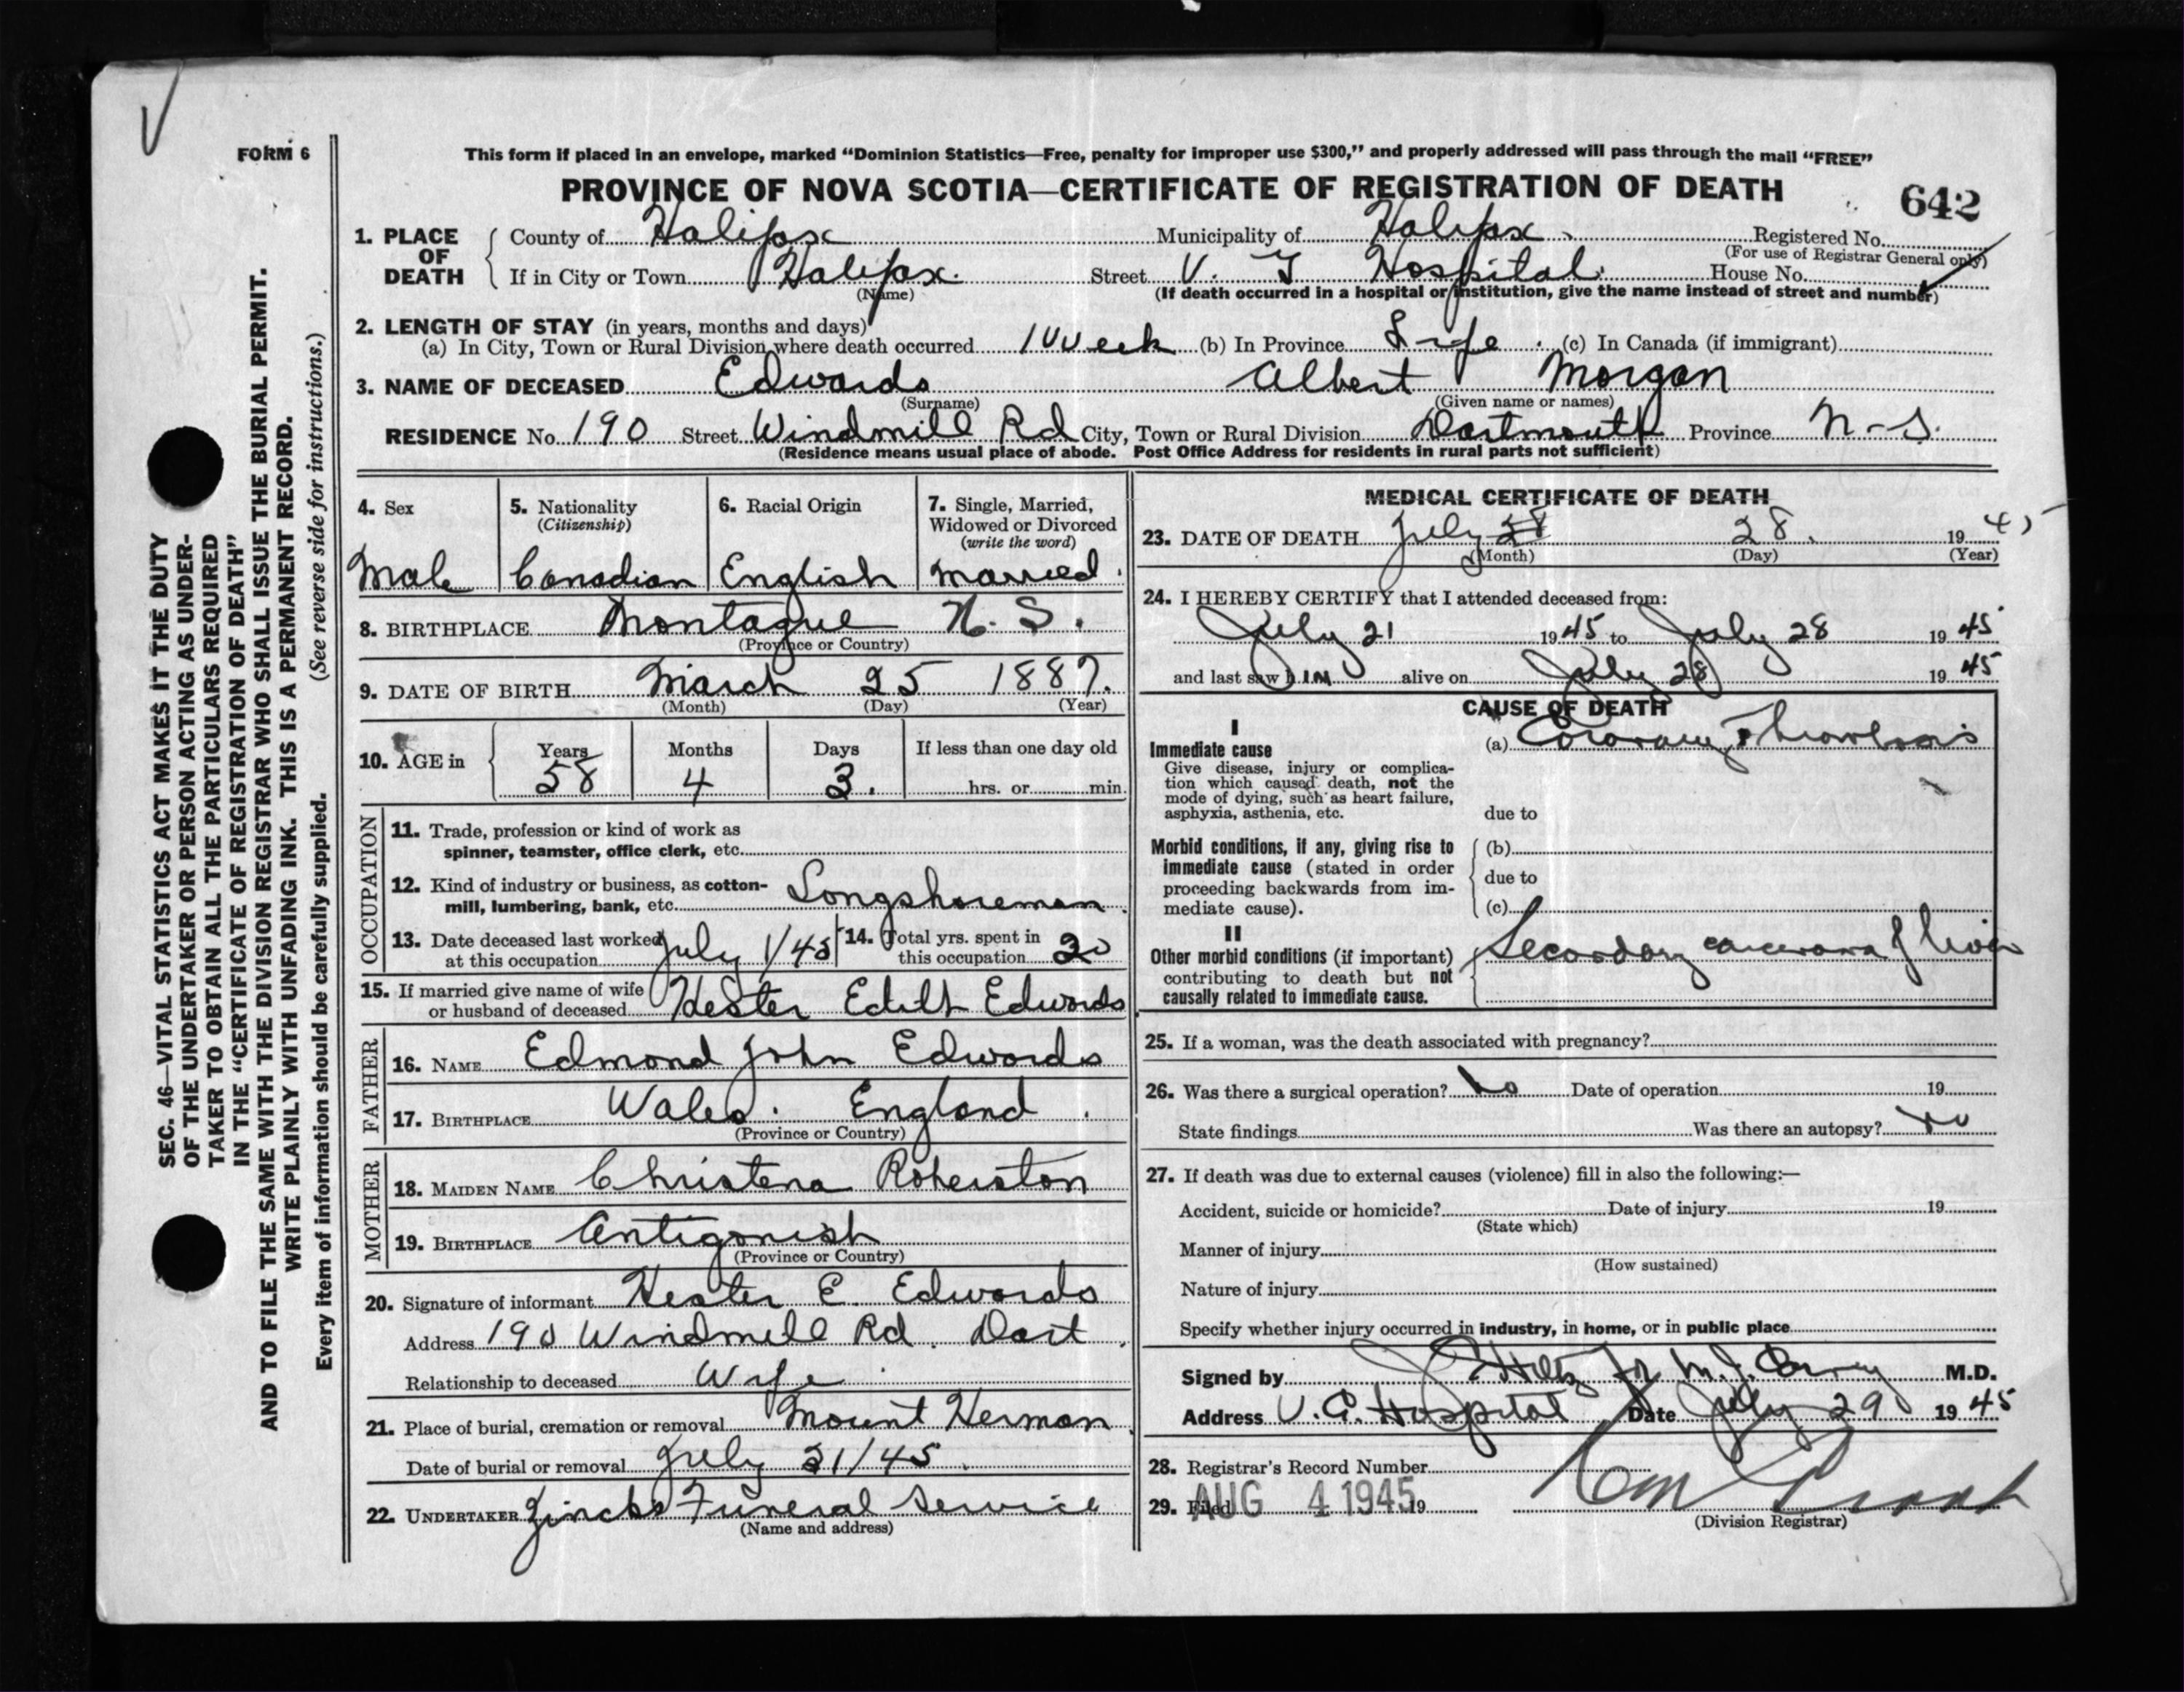 FORM 6
This form if placed in an envelope, marked “Dominion Statistics—Free, penalty for improper use $300,” and properly addressed will pass through the mail “FREE”
PROVINCE OF NOVA SCOTIA—CERTIFICATE OF REGISTRATION OF DEATH
642
1. PLACE OF DEATH
County of Halifax Municipality of Halifax. Registered No.
(For use of Registrar General only)
If in City or Town Halifax. Street V. G Hospital. House No.
(Name) (If death occurred in a hospital or institution, give the name instead of street and number)
2. LENGTH OF STAY (in years, months and days)
(a) In City, Town or Rural Division where death occurred 1 Week (b) In Province Life. (c) In Canada (if immigrant)
3. NAME OF DECEASED Edwards Albert Morgan
(Surname) (Given name or names)
RESIDENCE No. 190 Street Windmill Rd City, Town or Rural Division Dartmouth Province N-S.
(Residence means usual place of abode. Post Office Address for residents in rural parts not sufficient)
4. Sex
Male
5. Nationality
(Citizenship)
Canadian
6. Racial Origin
English
7. Single, Married,
Widowed or Divorced
(write the word)
Married.
8. BIRTHPLACE Montague N. S.
(Province or Country)
9. DATE OF BIRTH March 25 1887.
(Month) (Day) (Year)
10. AGE in
Years Months Days If less than one day old
58 4 3. hrs. or min.
OCCUPATION
11. Trade, profession or kind of work as
spinner, teamster, office clerk, etc.
12. Kind of industry or business, as cotton-
mill, lumbering, bank, etc. Longshoreman.
13. Date deceased last worked
at this occupation July 1/45
14. Total yrs. spent in
this occupation 20
15. If married give name of wife
or husband of deceased Hester Edith Edwards
FATHER
16. NAME Edmond John Edwards
17. BIRTHPLACE Wales. England.
(Province or Country)
MOTHER
18. MAIDEN NAME Christena Roberston
19. BIRTHPLACE Antigonish
(Province or Country)
20. Signature of informant Hester E. Edwards
Address 190 Windmill Rd. Dart.
Relationship to deceased Wife.
21. Place of burial, cremation or removal Mount Herman.
Date of burial or removal July 31/45.
22. UNDERTAKER Zincks Funeral Service
(Name and address)
MEDICAL CERTIFICATE OF DEATH
23. DATE OF DEATH July 28 28. 1945
(Month) (Day) (Year)
24. I HEREBY CERTIFY that I attended deceased from:
July 21 1945 to July 28 1945
and last saw him alive on July 28 1945
CAUSE OF DEATH
I
Immediate cause
Give disease, injury or complica-
tion which caused death, not the
mode of dying, such as heart failure,
asphyxia, asthenia, etc.
(a) Coronary Thrombosis
due to
Morbid conditions, if any, giving rise to
immediate cause (stated in order
proceeding backwards from im-
mediate cause).
(b)
due to
(c)
II
Other morbid conditions (if important)
contributing to death but not
causally related to immediate cause.
Secondary carcinoma of liver
25. If a woman, was the death associated with pregnancy?
26. Was there a surgical operation? No Date of operation 19
State findings Was there an autopsy? No
27. If death was due to external causes (violence) fill in also the following:—
Accident, suicide or homicide? Date of injury 19
(State which)
Manner of injury
(How sustained)
Nature of injury
Specify whether injury occurred in industry, in home, or in public place
Signed by Hiltz for M.J. M.D.
Address V.G. Hospital Date July 29 1945
28. Registrar's Record Number
29. Filed AUG 4 1945 19
(Division Registrar)
SEC. 46—VITAL STATISTICS ACT MAKES IT THE DUTY
OF THE UNDERTAKER OR PERSON ACTING AS UNDER-
TAKER TO OBTAIN ALL THE PARTICULARS REQUIRED
IN THE “CERTIFICATE OF REGISTRATION OF DEATH”
AND TO FILE THE SAME WITH THE DIVISION REGISTRAR WHO SHALL ISSUE THE BURIAL PERMIT.
WRITE PLAINLY WITH UNFADING INK. THIS IS A PERMANENT RECORD.
Every item of information should be carefully supplied. (See reverse side for instructions.)